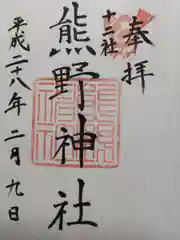 奉拝
十二社
熊野神社
平成二十八年二月九日